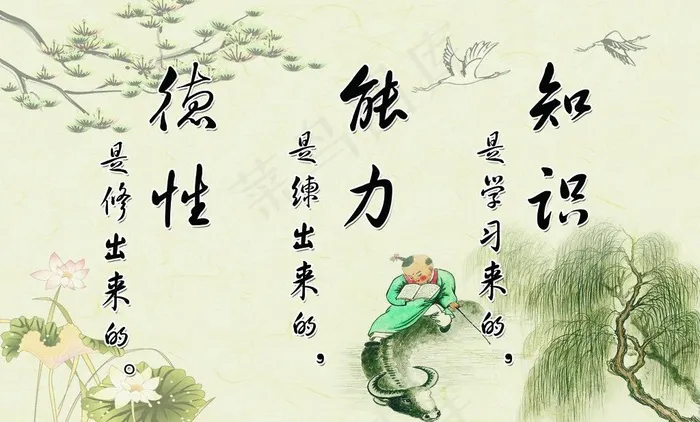 知识
是学习来的，
能力
是练出来的，
德性
是修出来的。